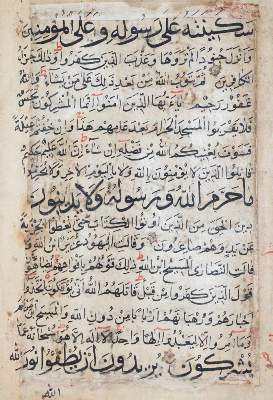 سكينته على رسوله وعلى المؤمنين
وانزل جنودا لم تروها وعذب الذين كفروا وذلك جزاء
الكافرين ثم يتوب الله من بعد ذلك على من يشاء والله
غفور رحيم يا ايها الذين امنوا انما المشركون نجس
فلا يقربوا المسجد الحرام بعد عامهم هذا وان خفتم عيلة
فسوف يغنيكم الله من فضله ان شاء ان الله عليم حكيم
قاتلوا الذين لا يؤمنون بالله ولا باليوم الاخر ولا يحرمون
ما حرم الله ورسوله ولا يدينون
دين الحق من الذين اوتوا الكتاب حتى يعطوا الجزية
عن يد وهم صاغرون وقالت اليهود عزير ابن الله و
قالت النصارى المسيح ابن الله ذلك قولهم بافواههم يضاهؤن
قول الذين كفروا من قبل قاتلهم الله انى يؤفكون اتخذوا
احبارهم ورهبانهم اربابا من دون الله والمسيح ابن مريم
وما امروا الا ليعبدوا الها واحدا لا اله الا هو سبحانه عما
يشركون يريدون ان يطفؤا نور الله
الله